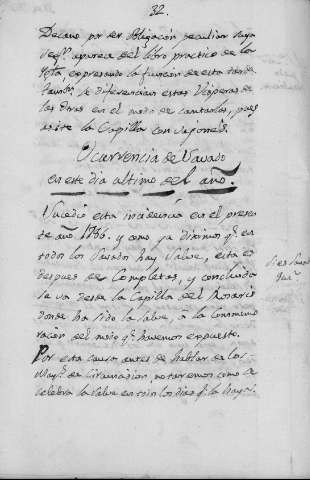 32.
Decano por ser obligación peculiar suya
segⁿ aparece del libro practico de la
expresando la función de esta tarde.
tambⁿ se diferencian estas Visperas de
las otras en el modo de cantarlas, pues
asiste la Capilla con
Ocurrencia de Savado
en este dia ultimo del año.
Sucedió esta incidencia en el presen
te año 1786. y como ya diximos qᵉ en
todos los Savados hay Salve, esta es
despues de Completas, y concluida
se va desde la Capilla del Rosario
donde ha sido la salve, á la Conmemo
ración del modo qᵉ havemos expuesto.
Por esta causa antes de hablar de los
Mayᵗ de Circuncision, notaremos como se
celebra la Salve en todos los dias qᵉ la hay.